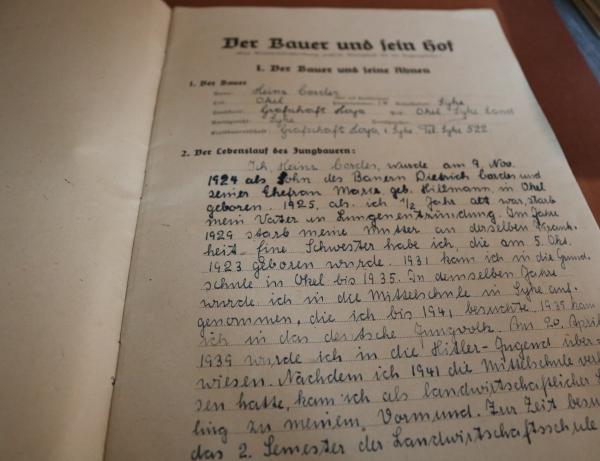 Der Bauer und sein Hof
I. Der Bauer und seine Ahnen
1. Der Bauer
Heinz Cordes
Okel Syke
Grafschaft Hoya Okel, Syke Land
Syke
Grafschaft Hoya, Syke Tel. Syke 522
2. Der Lebenslauf des Jungbauern:
Ich, Heinz Cordes, wurde am 9. Nov.
1924 als Sohn des Bauern Dietrich Cordes und
seiner Ehefrau Marie geb. Hillmann, in Okel
geboren. 1925, als ich 1/2 Jahr alt war, starb
mein Vater an Lungenentzündung. Im Jahre
1929 starb meine Mutter an derselben Krank-
heit. Eine Schwester habe ich, die am 5. Okt.
1923 geboren wurde. 1931 kam ich in die Grund-
schule in Okel bis 1935. In demselben Jahre
wurde ich in die Mittelschule in Syke auf-
genommen, die ich bis 1941 besuchte. 1935 kam
ich in das deutsche Jungvolk. Am 20. April
1939 wurde ich in die Hitler-Jugend über-
wiesen. Nachdem ich 1941 die Mittelschule verl
sen hatte, kam ich als landwirtschaftlicher
ling zu meinem Vormund. Zur Zeit besu
das 2. Semester der Landwirtschaftsschule